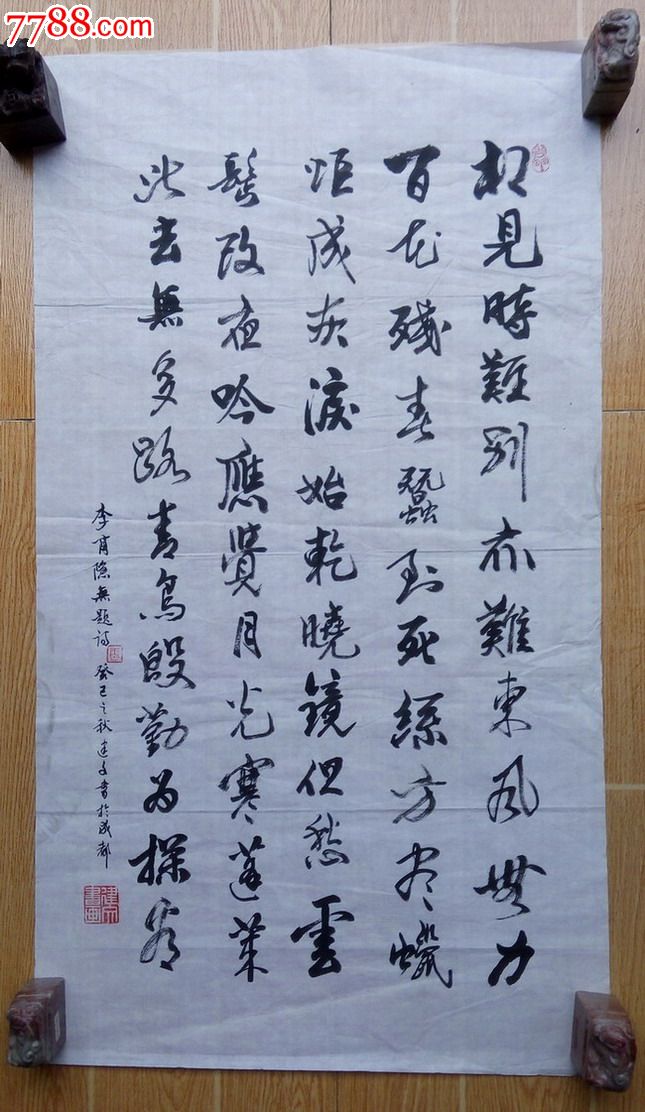 7788.com
相見時難别亦難東風無力
百花殘春蠶到死絲方盡蠟
炬成灰淚始乾曉鏡但愁雲
鬢改夜吟應覺月光寒蓬萊
此去無多路青鳥殷勤為探看
李商隱無題詩
癸巳之秋建文書於成都
建文書画